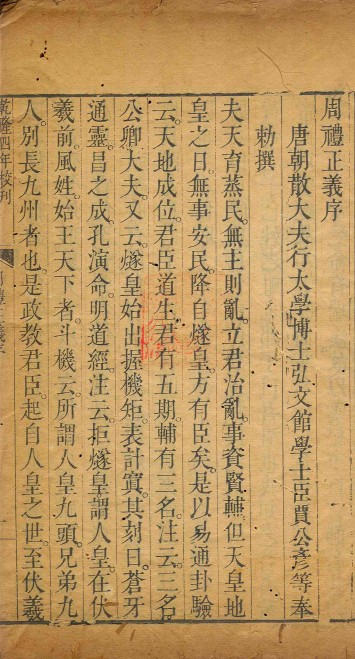 周禮正義序
唐朝散大夫行太學博士弘文館學士臣賈公彥等奉
勑撰
夫天育蒸民。無主則亂。立君治亂。事資賢輔。但天皇地
皇之日。無事安民。降自燧皇。方有臣矣。是以易通卦驗
云。天地成位。君臣道生。君有五期。輔有三名。注云。三名。
公卿大夫。又云。燧皇始出握機矩。表計寘。其刻曰。蒼牙
通靈。昌之成。孔演命。明道經。注云。拒燧皇謂人皇。在伏
羲前。風姓。始王天下者。斗機云。所謂人皇九頭。兄弟九
人。別長九州者也。是政教君臣。起自人皇之世。至伏羲
乾隆四年校刊